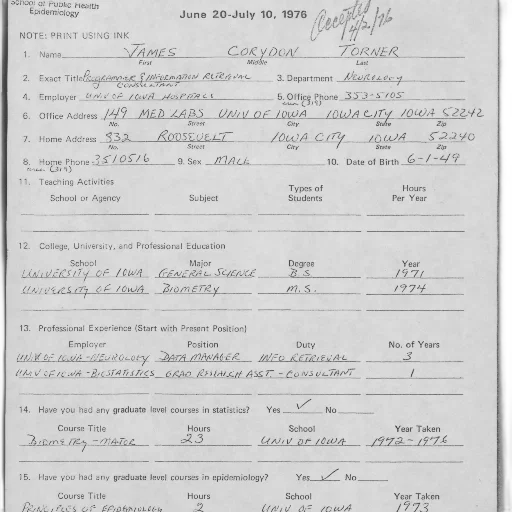 School of Public Health
Epidemiology
June 20-July 10, 1976
Accepted
4/2/76
NOTE: PRINT USING INK
1. Name JAMES CORYDON TORNER
First Middle Last
2. Exact Title PROGRAMMER & INFORMATION RETRIEVAL CONSULTANT 3. Department NEUROLOGY
4. Employer UNIV OF IOWA HOSPITALS 5. Office Phone 353-5105
(319)
6. Office Address 149 MED LABS UNIV OF IOWA IOWA CITY IOWA 52242
No. Street City State Zip
7. Home Address 332 ROOSEVELT IOWA CITY IOWA 52240
No. Street City State Zip
8. Home Phone 3510516 9. Sex MALE 10. Date of Birth 6-1-49
(319)
11. Teaching Activities
School or Agency Subject Types of Students Hours Per Year
12. College, University, and Professional Education
School Major Degree Year
UNIVERSITY OF IOWA GENERAL SCIENCE B.S. 1971
UNIVERSITY OF IOWA BIOMETRY M.S. 1974
13. Professional Experience (Start with Present Position)
Employer Position Duty No. of Years
UNIV OF IOWA-NEUROLOGY DATA MANAGER INFO RETRIEVAL 3
UNIV OF IOWA-BIOSTATISTICS GRAD RESEARCH ASST.-CONSULTANT 1
14. Have you had any graduate level courses in statistics? Yes ✓ No
Course Title Hours School Year Taken
BIOMETRY-MAJOR 23 UNIV OF IOWA 1972-1976
15. Have you had any graduate level courses in epidemiology? Yes ✓ No
Course Title Hours School Year Taken
PRINCIPLES OF EPIDEMIOLOGY 2 UNIV OF IOWA 1973